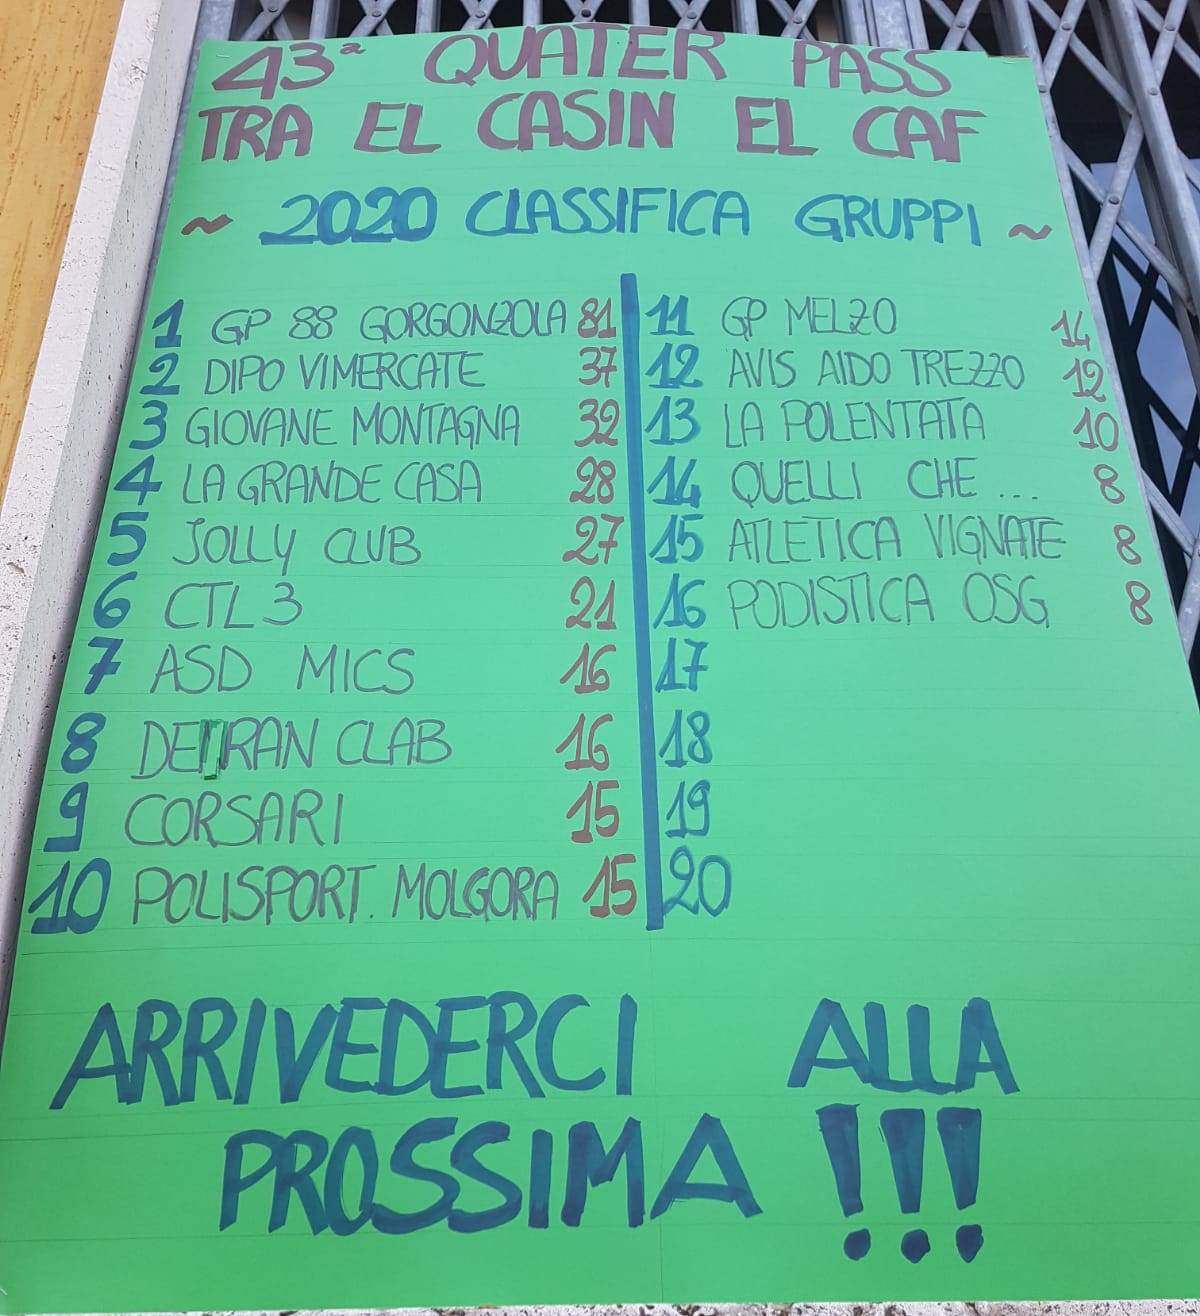 43ª QUATER PASS
TRA EL CASIN EL CAF
~ 2020 CLASSIFICA GRUPPI ~
1 GP 88 GORGONZOLA 81
2 DIPO VIMERCATE 37
3 GIOVANE MONTAGNA 32
4 LA GRANDE CASA 28
5 JOLLY CLUB 27
6 CTL 3 21
7 ASD MICS 16
8 DETRAN CLAB 16
9 CORSARI 15
10 POLISPORT. MOLGORA 15
11 GP MELZO 14
12 AVIS AIDO TREZZO 12
13 LA POLENTATA 10
14 QUELLI CHE ... 8
15 ATLETICA VIGNATE 8
16 PODISTICA OSG 8
17
18
19
20
ARRIVEDERCI ALLA
PROSSIMA !!!